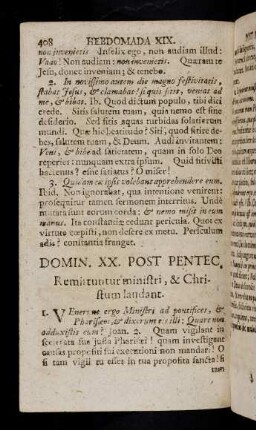 408 HEBDOMADA XIX.
non invenietis Infelix ego, non audiam illud:
Vade! Non audiam: non invenietis. Quæram te
Jesu, donec inveniam; & tenebo.
2. In novissimo autem die magno festivitatis,
stabat Jesus, & clamabat! si quis sitit, veniat ad
me, & bibat. Ib. Quod dictum populo, tibi dici
crede. Sitis salutem tuam, quia tuend est sine
desiderio. Sed sitis aquas turbidas solatiorum
mundi. Quæ hic beatitudo? Siti, quod sitire de-
bes, salutem tuam, & Deum. Audi invitantem:
Veni, & bibe ad satietatem, quam in solo Deo
reperies: nunquam extra ipsum. Quid sitivisti
hactenus? esne satiatus? O miser!
3. Quidam ex ipsis volebant apprehendere eum.
Ibid. Non ignorabat, qua intentione venirent:
prosequitur tamen sermonem interritus. Unde
mutata sunt eorum corda: & nemo misit in eum
manus. Ita constantiæ cedunt pericula. Quot ex
virtute cœpisti, non desere ex metu. Periculum
adis? constantia franget.
DOMIN. XX. POST PENTEC.
Remittuntur ministri, & Chri-
stum laudant.
1. VEnerunt ergo Ministri ad pontifices, &
Pharisæos, & dixerunt eis illi: Quare non
adduxistis eum? Joan. 2. Quam vigilant in
scelerata sue jussa Pharisæi! quam investigant
causas propositi sui executioni non mandati! O
si tam vigil tu esses in tua proposita sancta! si
tam